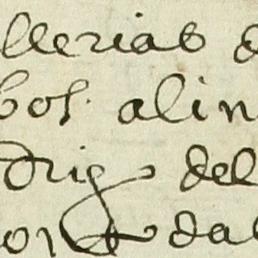 llerias d
bos. alin
drig del
or dal